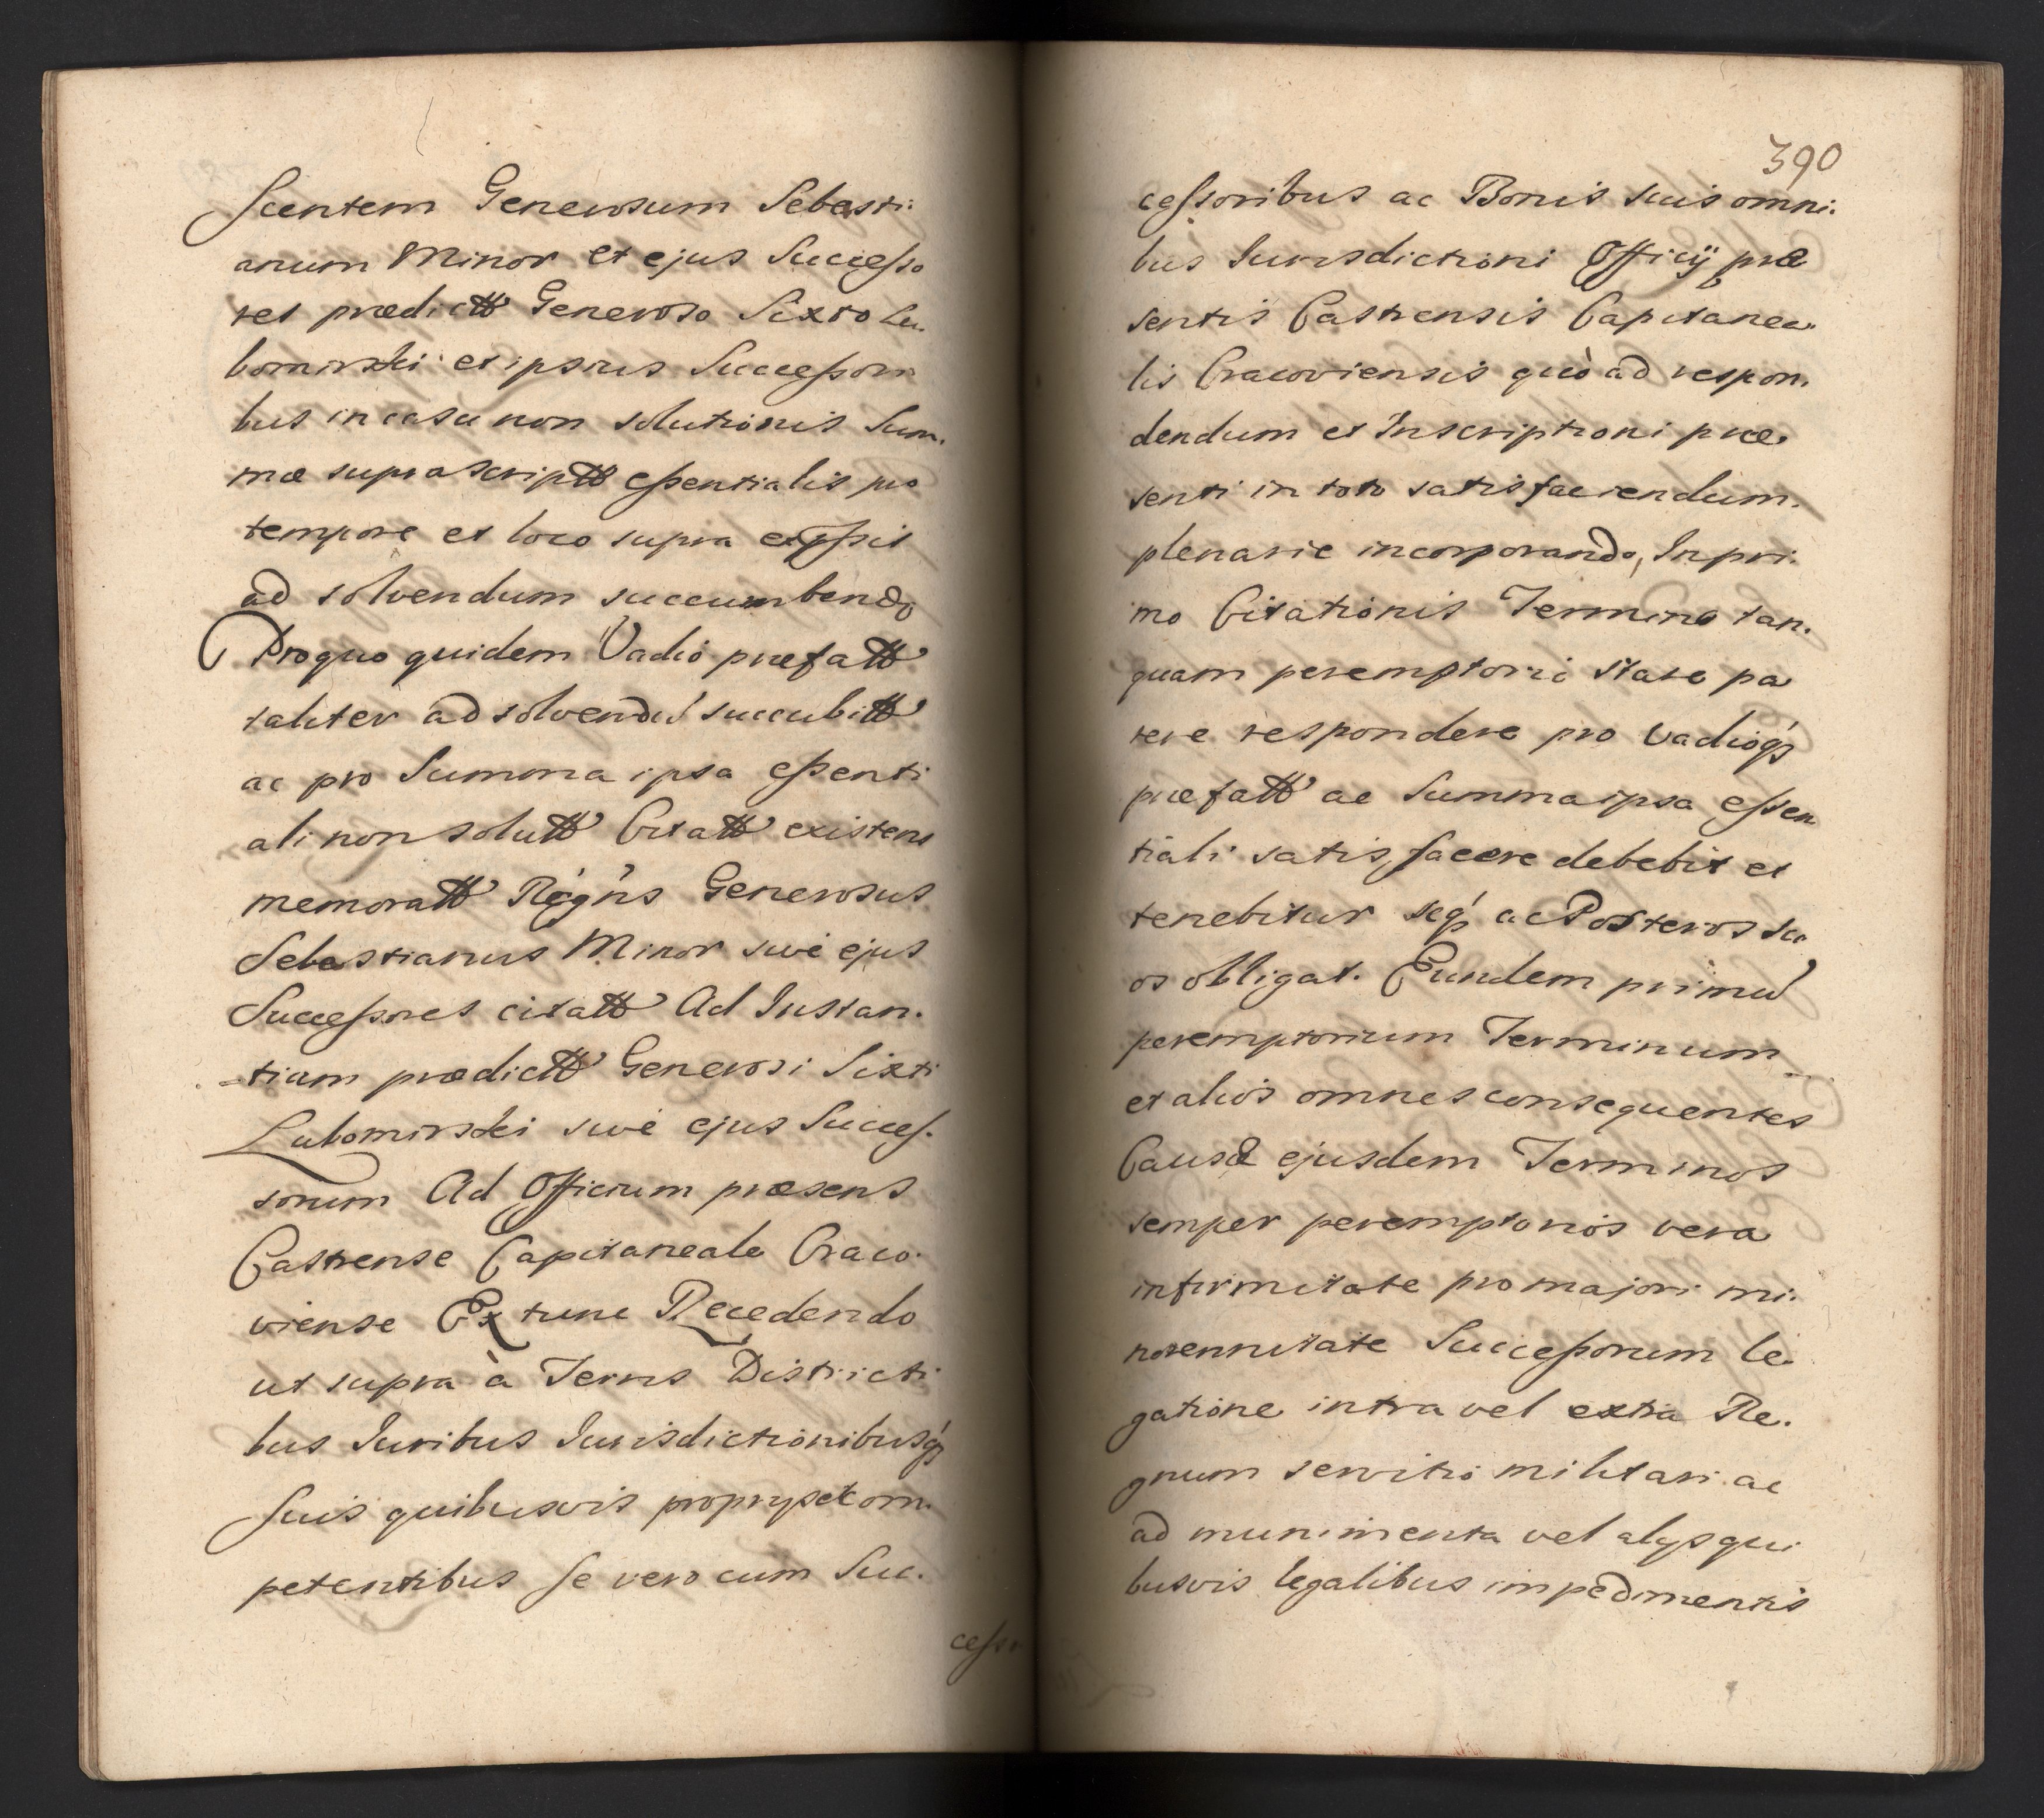 scentem Generosum Sebasti:
anum Minor et ejus Successo
res prædictt Generoso Sixto Lu.
bomirski et ipsius Successori
bus in casu non solutionis Sum.
mæ suprascriptt essentialis pro
tempore et loco supra expssis
ad solvendum succumbendo
Pro quo quidem Vadio præfatt
taliter ad solvendu succubitt
ac pro Summa ipsa essenti
ali non solutt Citatt existens
memoratt Rcgns Generosus
Sebastianus Minor sive ejus
Successores citatt Ad Instan.
-tiam prædictt Generosi Sixti
Lubomirski sive ejus Succes.
sorum Ad Officium præsens
Castrense Capitaneale Craco.
viense Ex tunc Recedendo
ut supra à Terris Districti
bus Iuribus Iurisdictionibusq
suis quibusvis proprys et com.
petentibus se vero cum Suc.
cesso
390
cessoribus ac Bonis suis omni.
bus Iurisdictioni Officij præ
sentis Castrensis Capitanea.
lis Cracoviensis quò ad respon.
dendum et Inscriptioni præ.
senti in toto satisfaciendum.
plenarie incorporando, In pri.
mo Citationis Termino tan.
quam peremptorii stare pa
rere respondere pro Vadioq
præfatt ac Summa ipsa essen
tiali satisfacere debebit et
tenebitur seq ac Posteros su
os obligat. Eundem primu
peremptorium Terminum
et alios omnes consequentes
Causæ ejusdem Terminos
semper peremptorios vera
infirmitate pro majori mi.
norennitate Successorum le.
gatione intra vel extra Re.
gnum servitio militari ac
ad munimenta vel alys qui
busvis legalibus impedimentis